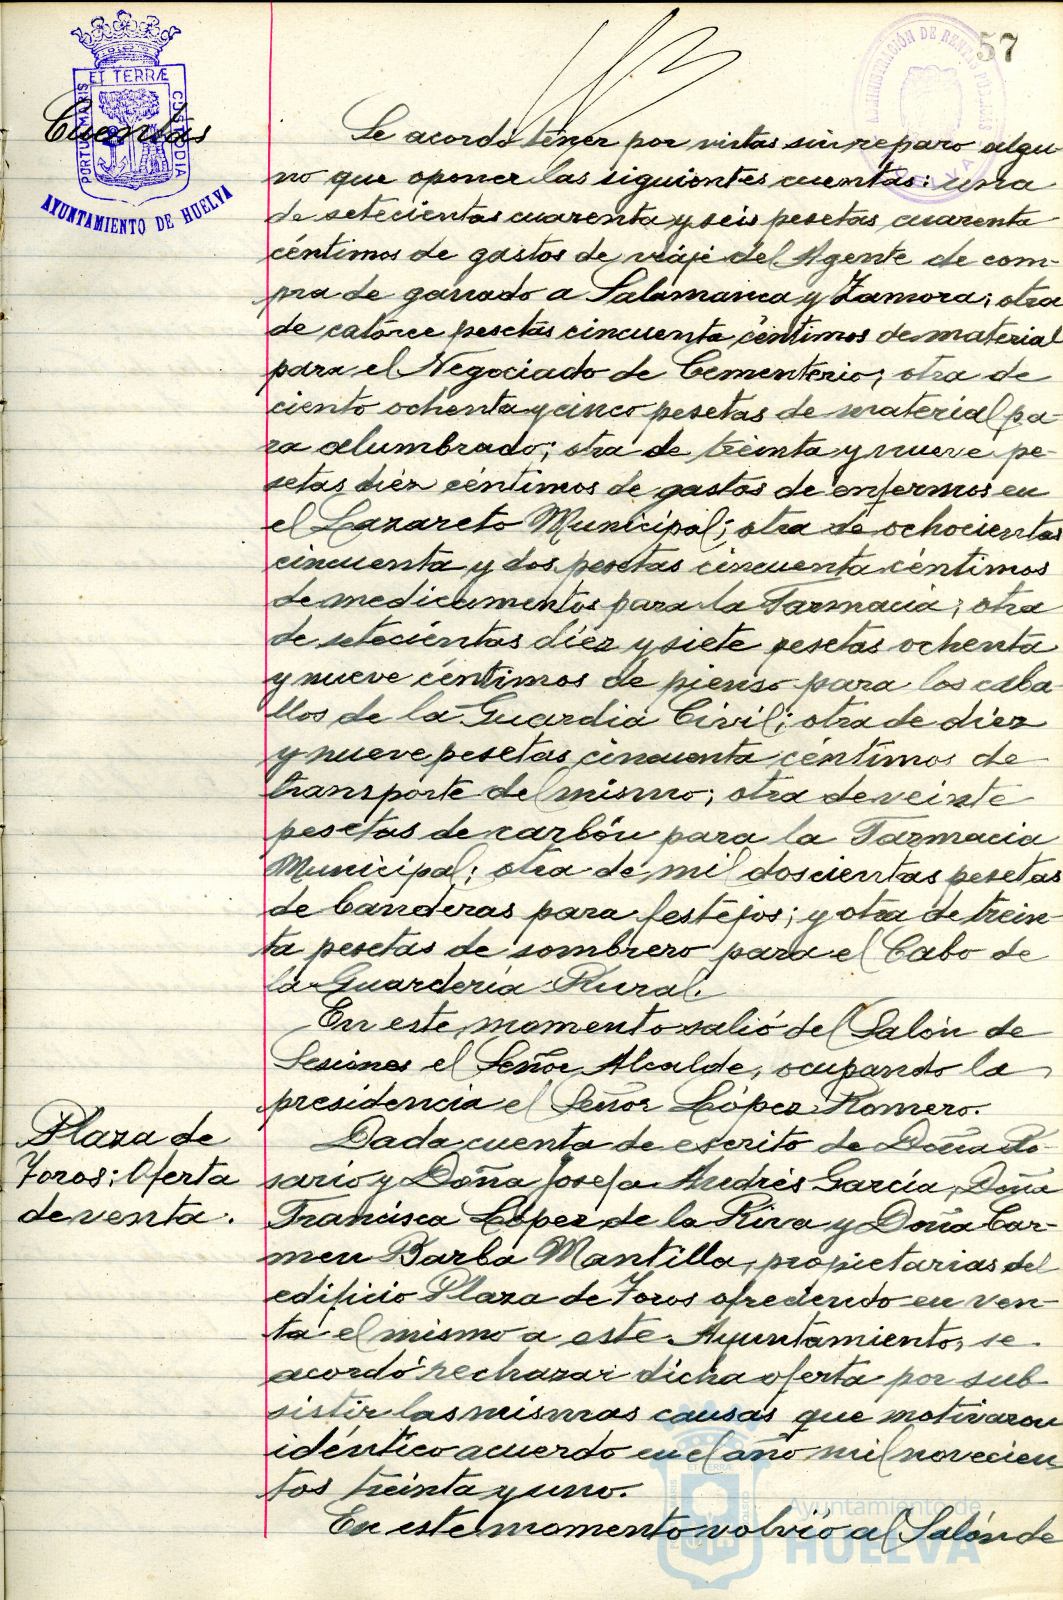 57
ET TERRÆ
PORTUS MARIS
CUSTODIA
AYUNTAMIENTO DE HUELVA
ADMINISTRACIÓN DE RENTAS PUBLICAS
Cuentas
Se acordó tener por vistas sin reparo algu
no que oponer las siguientes cuentas: una
de setecientas cuarenta y seis pesetas cuarenta
céntimos de gastos de viaje del Agente de com-
pra de ganado a Salamanca y Zamora; otra
de catorce pesetas cincuenta céntimos de material
para el Negociado de Cementerio; otra de
ciento ochenta y cinco pesetas de material pa-
ra alumbrado; otra de treinta y nueve pe-
setas diez céntimos de gastos de enfermos en
el Lazareto Municipal; otra de ochocientas
cincuenta y dos pesetas cincuenta céntimos
de medicamentos para la Farmacia; otra
de setecientas diez y siete pesetas ochenta
y nueve céntimos de pienso para los caba-
llos de la Guardia Civil; otra de diez
y nueve pesetas cincuenta céntimos de
transporte del mismo; otra de veinte
pesetas de carbón para la Farmacia
Municipal; otra de mil doscientas pesetas
de banderas para festejos; y otra de trein-
ta pesetas de sombrero para el Cabo de
la Guardería Rural.
En este momento salió del Salón de
Sesiones el Señor Alcalde, ocupando la
presidencia el Señor López Romero.
Plaza de
Toros: Oferta
de venta.
Dada cuenta de escrito de Doña Ro-
sario y Doña Josefa Andrés García, Doña
Francisca López de la Riva y Doña Car-
men Barba Mantilla, propietarias del
edificio Plaza de Toros ofreciendo en ven-
ta el mismo a este Ayuntamiento, se
acordó rechazar dicha oferta por sub-
sistir las mismas causas que motivaron
idéntico acuerdo en el año mil novecien
tos treinta y uno.
En este momento volvió al Salón de
Ayuntamiento de
HUELVA